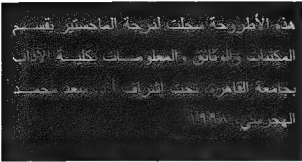 هذه الأطروحة سجلت لدرجة الماجستير بقسم
المكتبات والوثائق والمعلومات بكلية الآداب
بجامعة القاهرة تحت إشراف أ.د. سعد محمد
الهجرسي